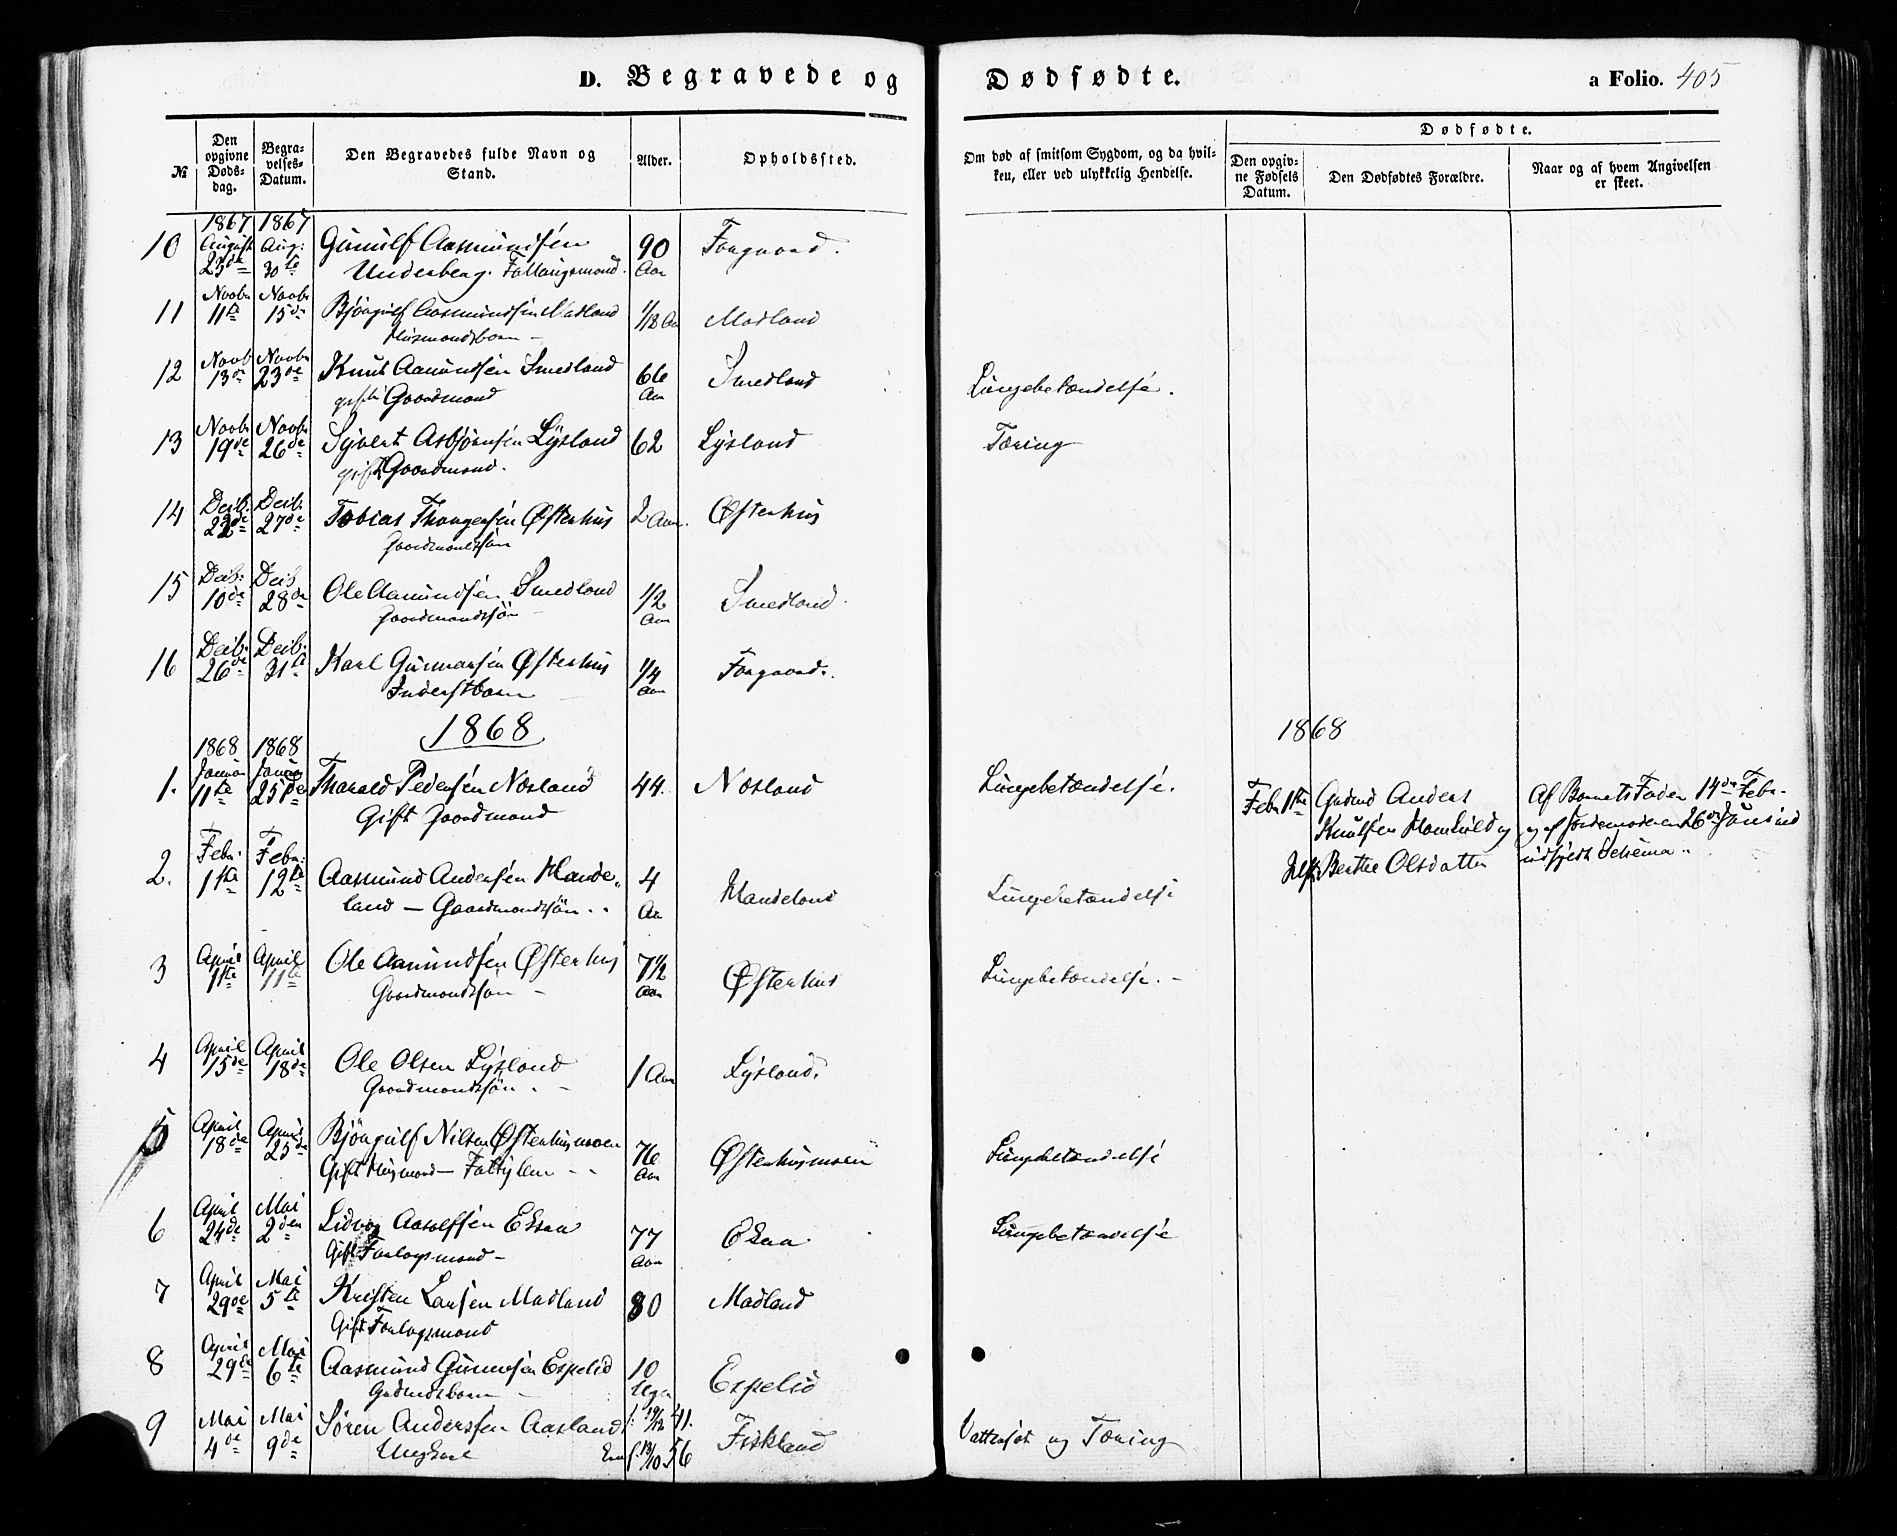 D. Begravede og Dødfødte.
a Folio. 405
№
Den opgivne Døds-dag.
Begra-velses-Datum.
Den Begravedes fulde Navn og Stand.
Alder.
Opholdssted.
Om død af smitsom Sygdom, og da hvil-ken, eller ved ulykkelig Hendelse.
Dødfødte.
Den opgiv-ne Fødsels Datum.
Den Dødfødtes Forældre.
Naar og af hvem Angivelsen er skeet.
1867 1867
10 August 23de Aug: 30te Gunulf Aasmundsen 90 Aar Forgaard.
Underberg.
11 Novbr 11te Novbr 15de Bjørgulf Aasmundsen Madland 1/8 Aar Madland
Husmandsbarn –
12 Novb 13de Novbr 23de Knut Aamundsen Smedland 66 Aar Smedland Lungebetændelse.
gift Gaardmand
13 Novbr 19de Novbr 26de Syvert Asbjørnsen Lysland 62 Lysland Tæring
gift Gaardmand.
14 Decb. 22de Decb. 27de Tobias Thorgersen Østerhus 2 Aar. Østerhus
Gaardmandssøn
15 Decb: 10de Decb 28de Ole Aamundsen Smedland 1/2 Aar Smedland.
Gaardmandssøn –
16 Decb: 26de Decb: 31te Karl Gunnarsen Østerhus 1/4 Aar Forgaard.
Inderstbarn
1868
1868
1868 1868
1. Januar 11te Januar 25de Tharald Pedersen Næsland 44. Næsland Lungebetændelse.
Gift Gaardmand
Febr 1ste Gadmd Anders Af Barnets Fader 14de Febr.
Knutsen Homlid og og af Jordemoderen 26de Jan ind
Berthe Olsdatter indsendt Schema..
2. Febr. 1ste Febr: 12te Aasmund Andersen Mande- 4 Aar Mandeland Lungebetændelse
land – Gaardmandssøn..
3 April 1ste April 11te Ole Aamundsen Østerhus 7 1/2 Aar Østerhus Lungebetændelse. –
Gaardmandssøn –
4 April 15de April 18de Ole Olsen Lysland 1 Aar Lysland.
Gaardmandssøn. –
5 April 18de April 25de Bjørgulf Nilsen Østerhusmoen 76 Aar Østerhusmoen Lungebetændelse
Gift Husmand – Fattiglem –
6 April 24de Mai 2den Lidvog Aasolfsen Eksaa 77 Aar Eksaa Lungebetændelse
Gift Forlogsmand –
7 April 29de Mai 5te Kristen Larsen Madland 80 Madland
Gift Forlogsmand
8 April 29de Mai 6te Aasmund Gunnersen Espelid 10 Uger Espelid
Gadmdsbarn –
9 Mai 4de Mai 9de Søren Anderssen Aasland f: 19/12 41. Fiskland Vattersot og Tæring
Ungkarl 13/10 56